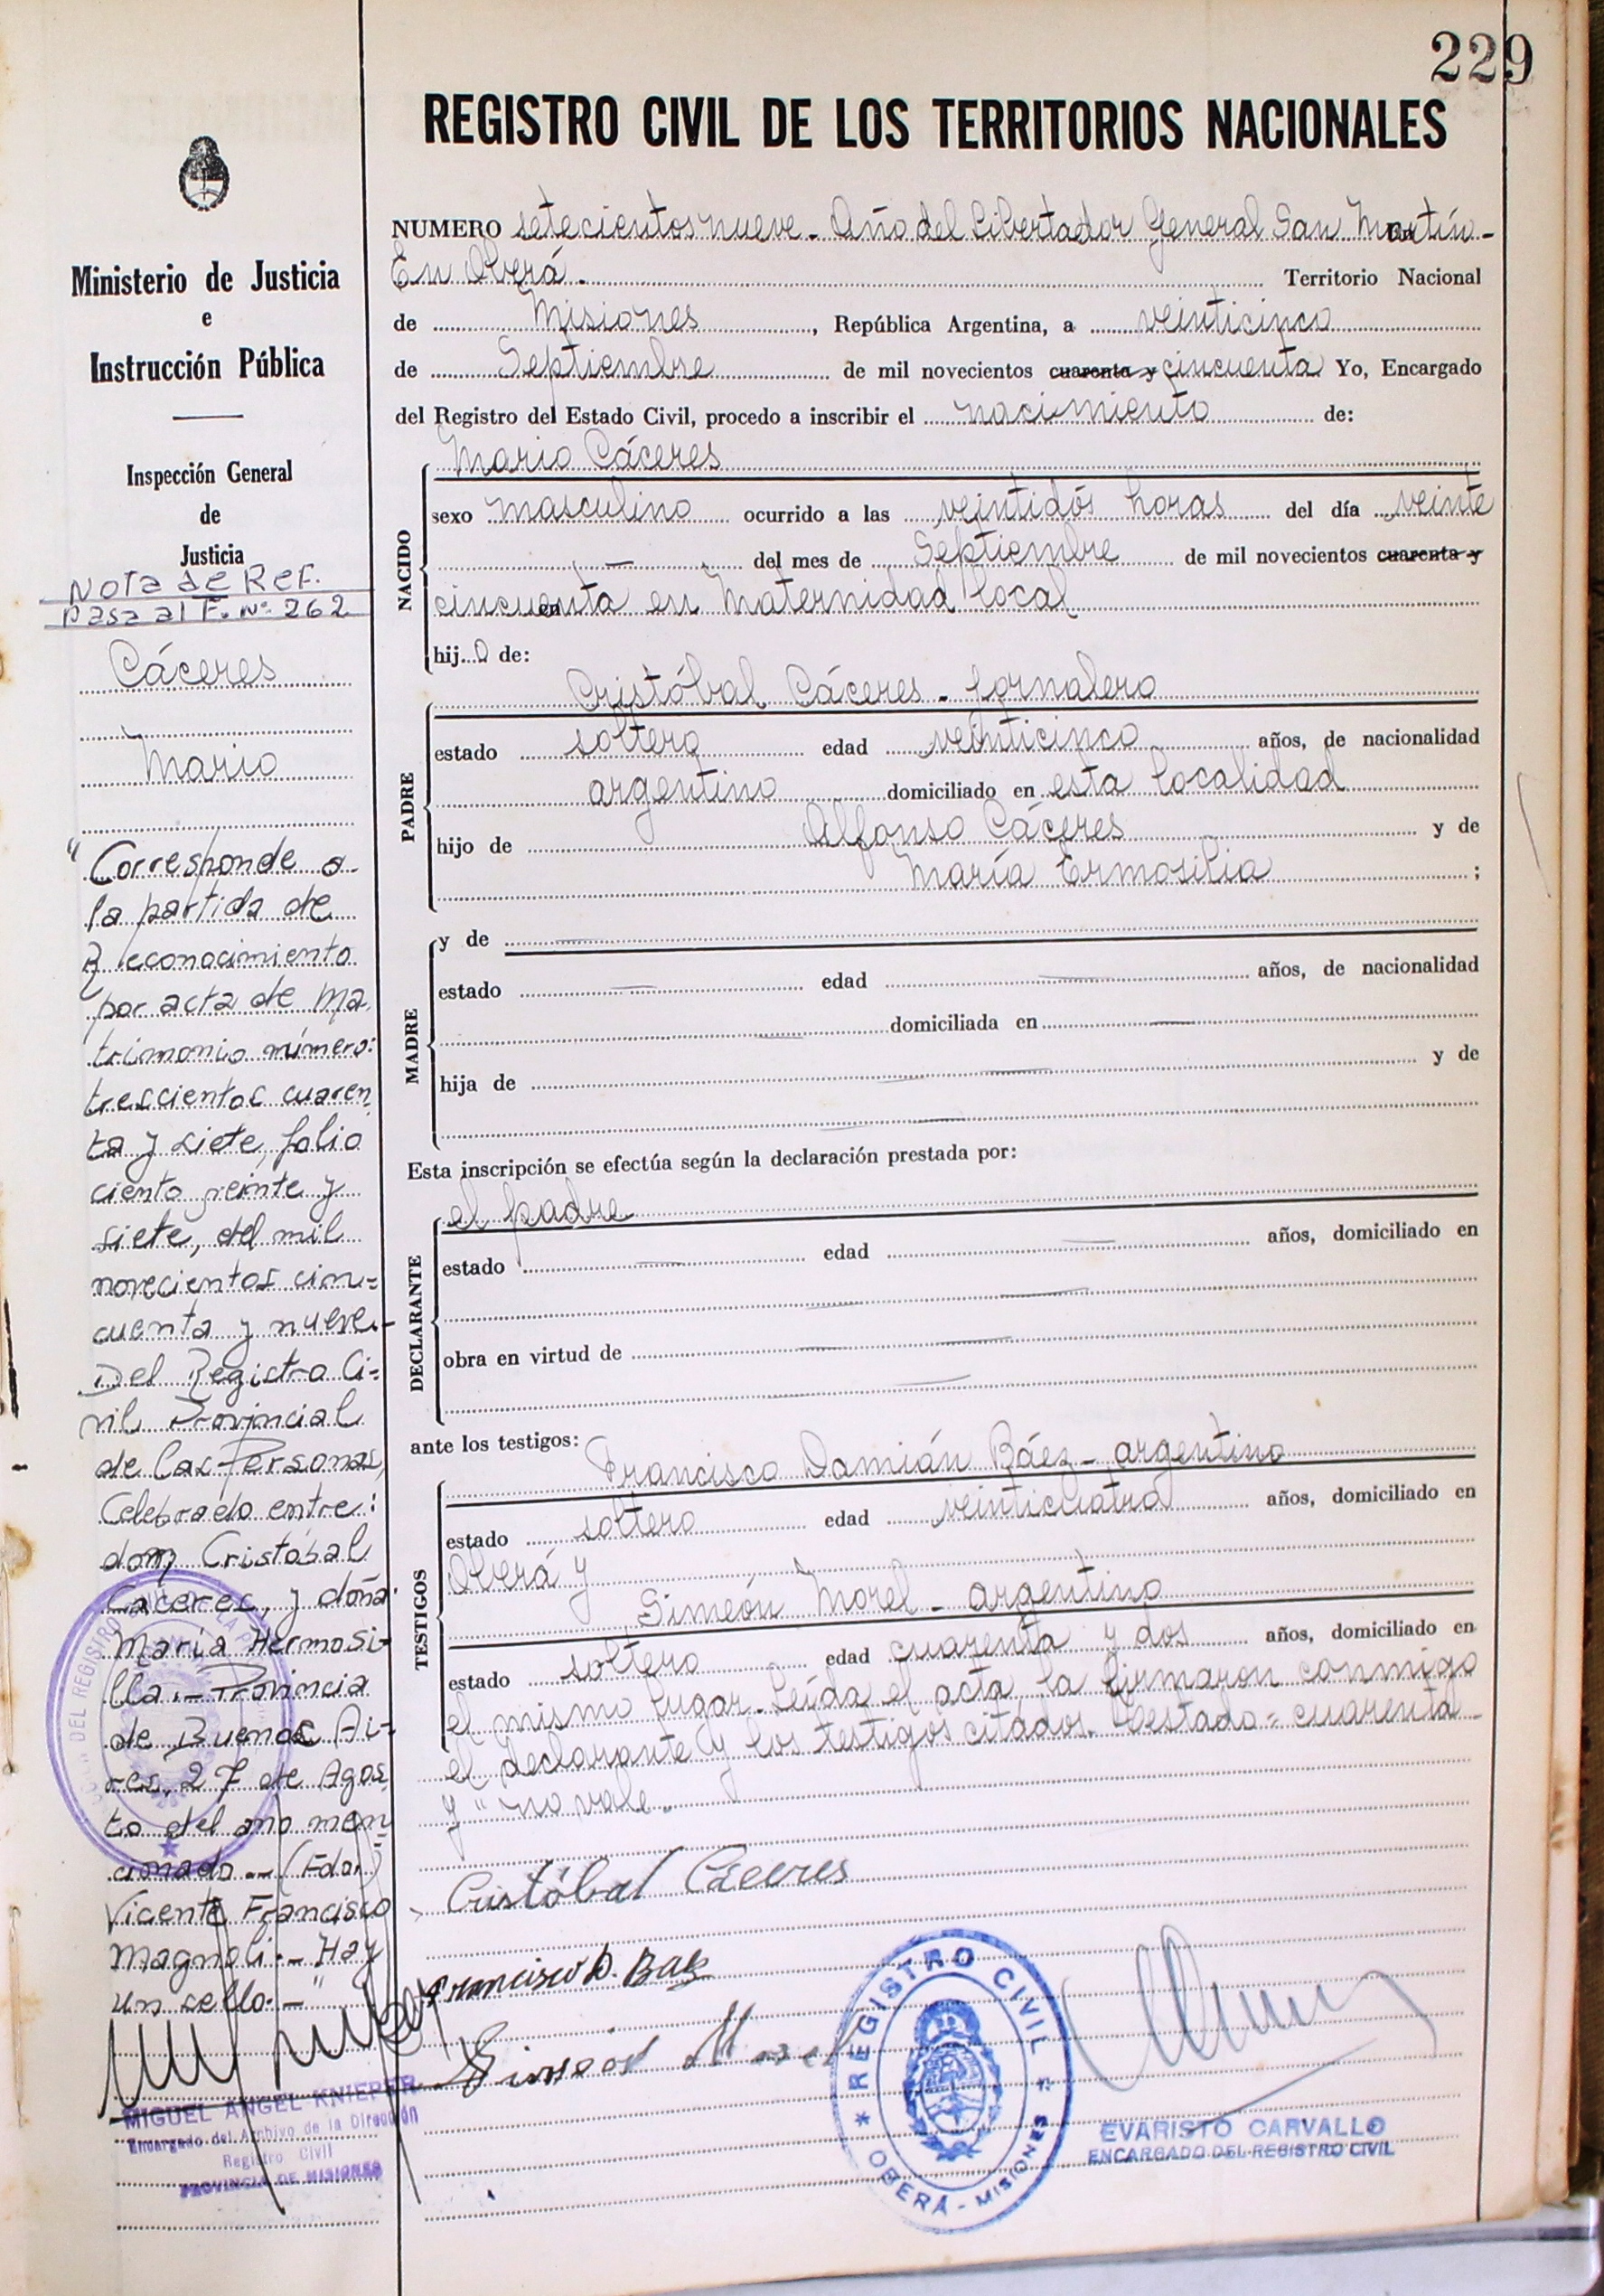 229
REGISTRO CIVIL DE LOS TERRITORIOS NACIONALES
Ministerio de Justicia
e
Instrucción Pública
Inspección General
de
Justicia
Nota de Ref.
Pasa al F. Nº 262
Cáceres
Mario
"Corresponde a
la partida de
Reconocimiento
por acta de Ma
trimonio número:
trescientos cuaren
ta y siete, folio
ciento veinte y
siete, del mil
novecientos cin=
cuenta y nueve.-
Del Registro Ci=
vil Provincial
de las Personas,
Celebrado entre:
don Cristóbal
Cáceres, y doña
María Hermosi-
lla.- Provincia
de Buenos Ai-
res, 27 de Agos
to del año men
cionado.-(Fdo.)
Vicente Francisco
Magnoli.- Hay
un sello.-"
MIGUEL ANGEL KNIEPER
Encargado del Archivo de la Dirección
Registro Civil
PROVINCIA DE MISIONES
NUMERO setecientos nueve. Año del Libertador General San Martín-
En Oberá. Territorio Nacional
de Misiones, República Argentina, a veinticinco
de Septiembre de mil novecientos cuarenta y cincuenta Yo, Encargado
del Registro del Estado Civil, procedo a inscribir el nacimiento de:
Mario Cáceres
NACIDO
sexo masculino ocurrido a las veintidós horas del día veinte
del mes de Septiembre de mil novecientos cuarenta y
cincuenta en Maternidad local
hijo de:
Cristóbal Cáceres - jornalero
PADRE
estado soltero edad veinticinco años, de nacionalidad
argentino domiciliado en esta localidad
hijo de Alfonso Cáceres y de
María Ermosilia ;
MADRE
y de
estado edad años, de nacionalidad
domiciliada en
hija de y de
Esta inscripción se efectúa según la declaración prestada por:
el padre
DECLARANTE
estado edad años, domiciliado en
obra en virtud de
ante los testigos:
Francisco Damián Báez - argentino
TESTIGOS
estado soltero edad veinticuatro años, domiciliado en
Oberá y
Simeón Morel - argentino
estado soltero edad cuarenta y dos años, domiciliado en
el mismo lugar. Leída el acta, la firmaron conmigo
el declarante y los testigos citados. Testado = cuarenta
y " no vale.
Cristóbal Cáceres
Francisco D. Baez
Simeón Morel
REGISTRO CIVIL
OBERÁ - MISIONES
EVARISTO CARVALLO
ENCARGADO DEL REGISTRO CIVIL